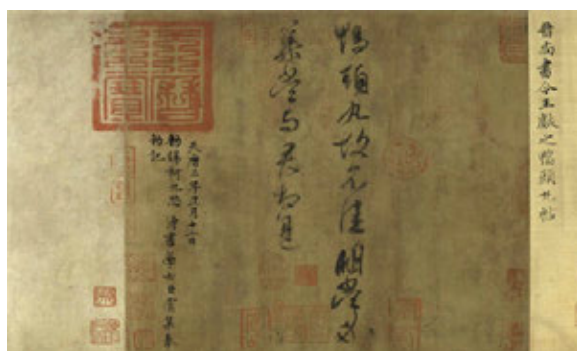 晉尚書令王獻之鴨頭丸帖
鴨頭丸故不佳明當必
集當與君相見
天曆三年正月十二日
勑賜柯九思侍書學士臣虞集奉
勑記